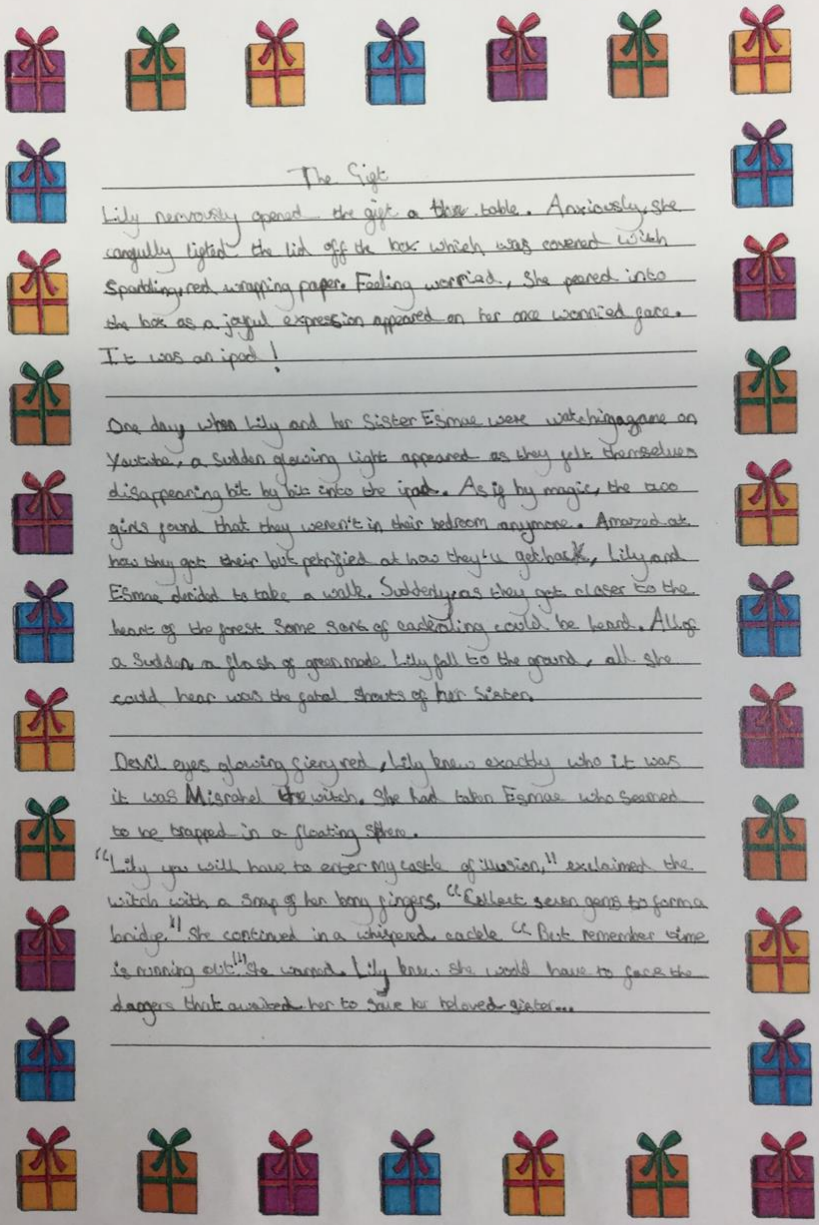 The Gift
Lily nervously opened the gift a the table. Anxiously, she
carfully lifted the lid off the box which was covered with
Sparkling, red wrapping paper. Feeling worried, She peered into
the box as a joyful expression appeared on her once worried face.
It was an ipad!
One day, when Lily and her Sister Esmae were watching a game on
Youtube, a Sudden glowing light appeared as they felt themselves
disappearing bit by bit into the ipad. As if by magic, the two
girls found that they weren't in their bedroom anymore. Amazed at
how they got their but petrified at how they'll get back, Lily and
Esmae decided to take a walk. Suddenly, as they got closer to the
heart of the forest Some sort of could be heard. All of
a Sudden a flash of green made Lily fall to the ground, all she
could hear was the fatal shouts of her Sister.
Devil eyes glowing fiery red, Lily knew exactly who it was
it was the witch. She had taken Esmae who seemed
to be trapped in a floating Sphere.
"Lily you will have to enter my castle of illusion," exclaimed the
witch with a snap of her bony fingers. "Collect seven gems to form a
bridge." She continued in a whispered cackle "But remember time
is running out!" She warned. Lily knew she would have to face the
dangers that awaited her to save her beloved sister...